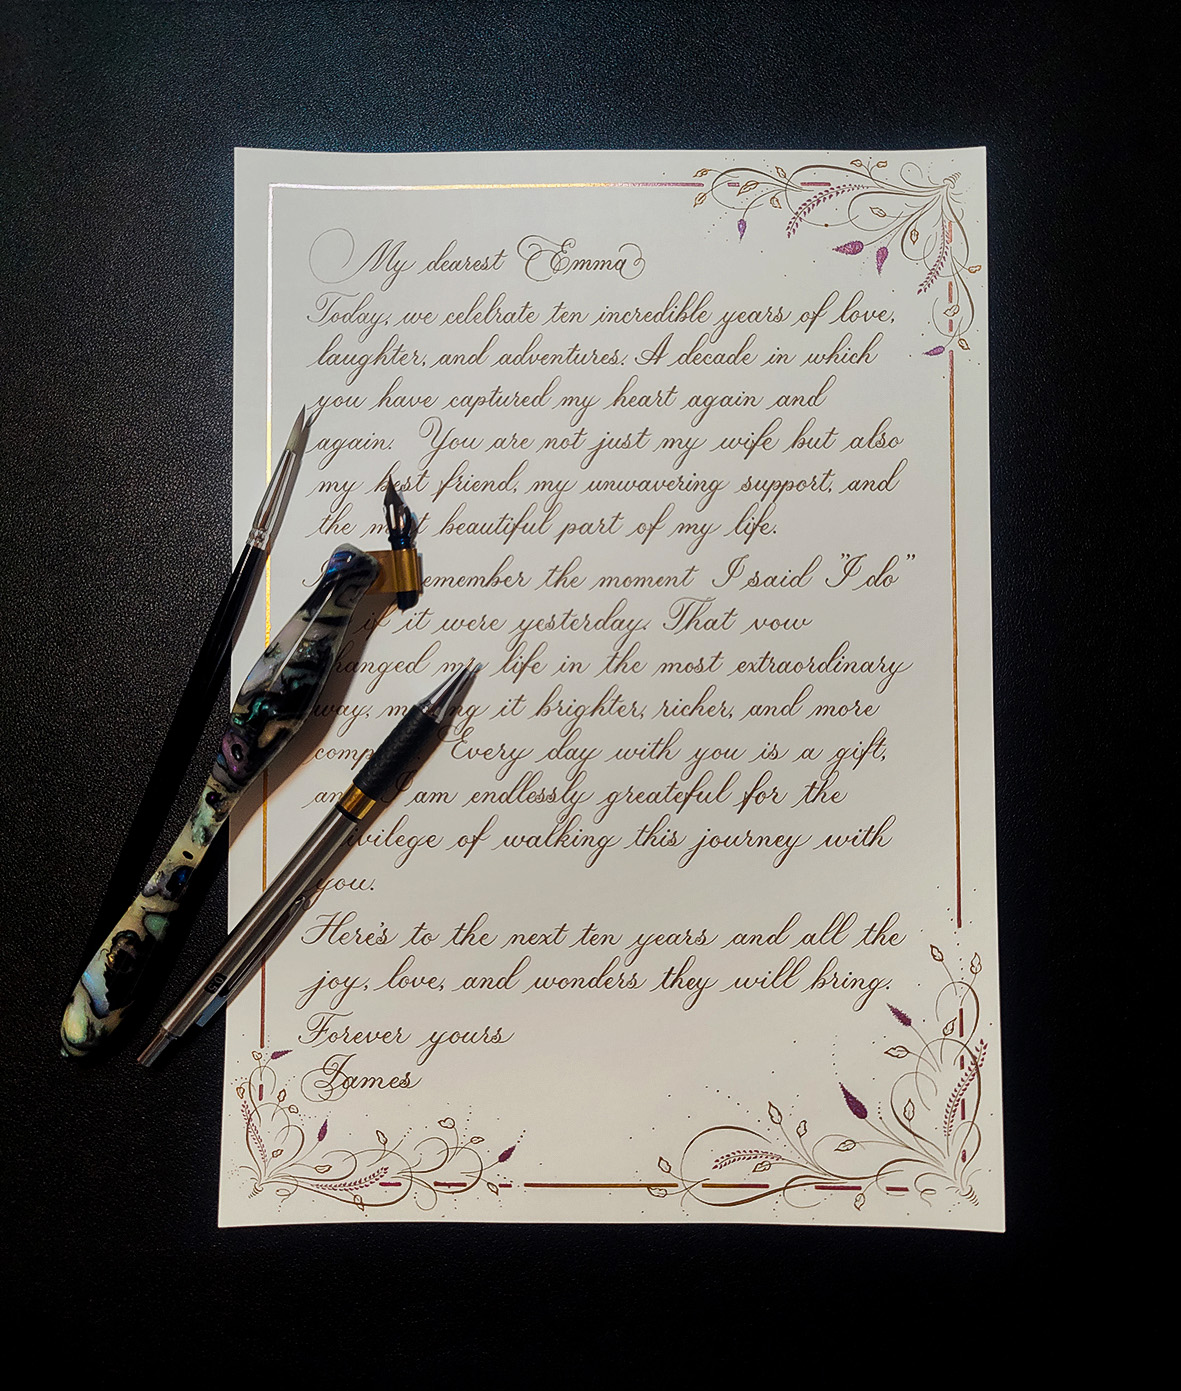 My dearest Emma
Today, we celebrate ten incredible years of love,
laughter, and adventures. A decade in which
you have captured my heart again and
again. You are not just my wife but also
my best friend, my unwavering support, and
the most beautiful part of my life.
remember the moment I said "I do"
if it were yesterday. That vow
changed my life in the most extraordinary
way, making it brighter, richer, and more
Every day with you is a gift,
and I am endlessly greateful for the
privilege of walking this journey with
you.
Here's to the next ten years and all the
joy, love, and wonders they will bring.
Forever yours
James